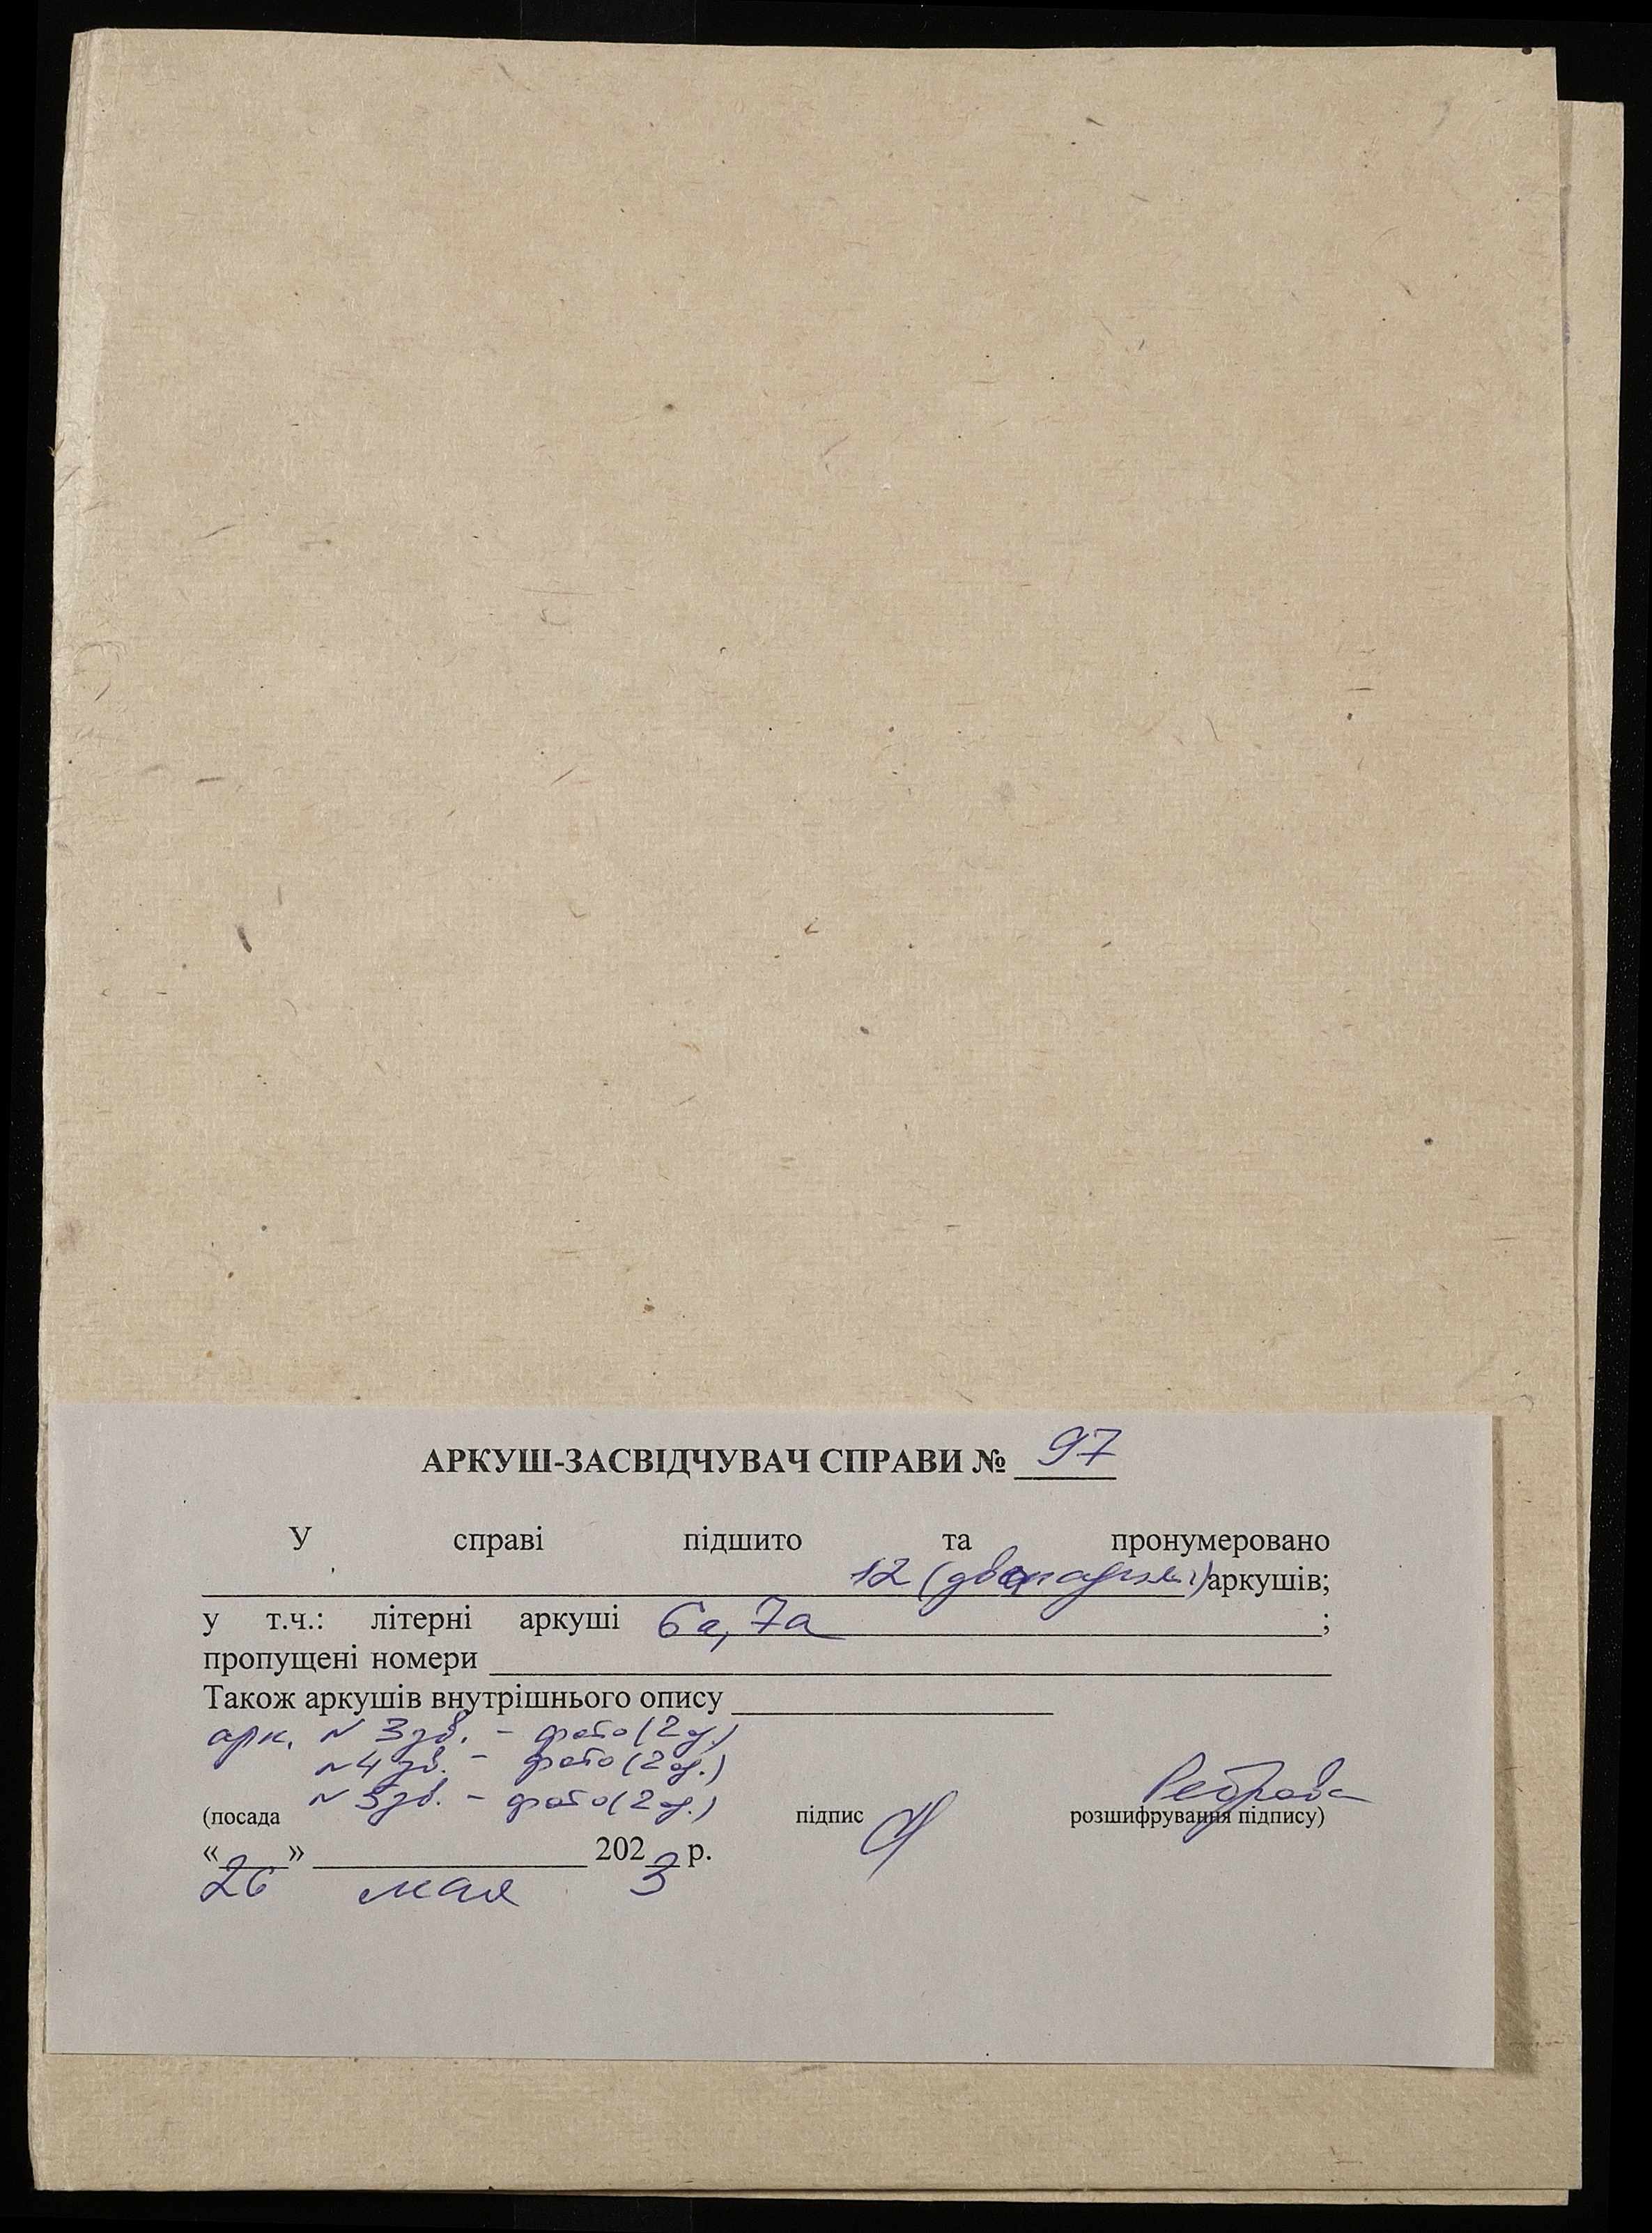 АРКУШ-ЗАСВІДЧУВАЧ СПРАВИ № 97
У справі підшито та пронумеровано
12 (дванадцять) аркушів;
у т.ч.: літерні аркуші 6а, 7а ;
пропущені номери
Також аркушів внутрішнього опису
арк. N 3зв. - фото (2 од.)
N 4 зв. - фото (2 од.)
N 5зв. - фото (2 од.)
(посада підпис розшифрування підпису)
«26» мая 2023 р.